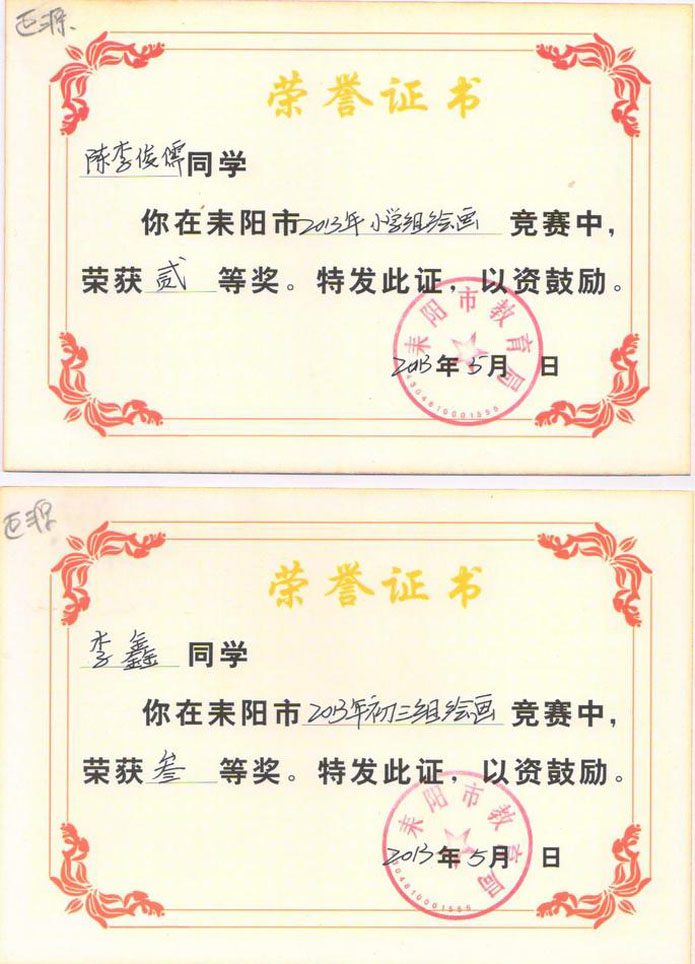 荣誉证书
陈李俊儒同学
你在耒阳市2013年小学组绘画竞赛中,
荣获贰等奖。特发此证,以资鼓励。
耒阳市教育局
2013年5月 日
荣誉证书
李鑫同学
你在耒阳市2013年初三组绘画竞赛中,
荣获叁等奖。特发此证,以资鼓励。
耒阳市教育局
2013年5月 日